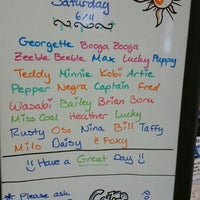 Saturday
6/11
Georgette Booga Zooga
Zeeble Beeble Max Lucky Puppy
Teddy Minnie Kobi Artie
Pepper Negra Captain Fred
Wasabi Bailey Brian Boru
Miss Coal Heather Lucky
Rusty Oso Nina Bill Taffy
Milo Daisy & Foxy
Have a Great Day
* Please ask